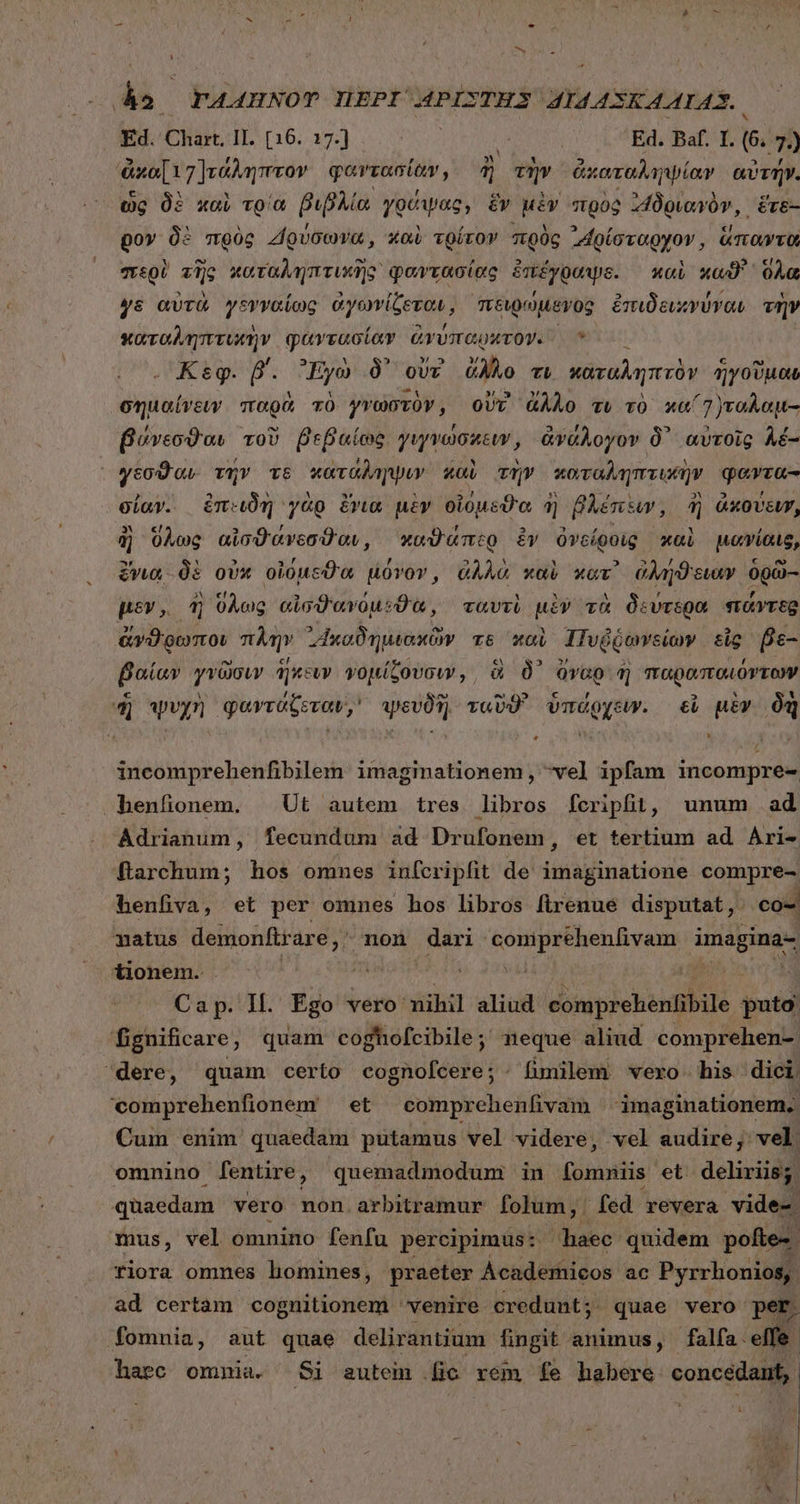 42 ΓΑΛΗΝΟΥ ΠΕΡΙ ΑΡΙΣΤΗΣ ΔΙΔΑΣΚΑΛΙΑΣ.
Ed. Chart. II. [16. 17.] Ed. Baf. I. (6. 7.)
ἀκα[17]τάληπτον φαντασίαν, ἢ τὴν ἀκαταληψίαν αὐτήν.
ὡς δὲ καὶ τρία βιβλία γράψας, ἓν μὲν πρὸς Ἀδριανὸν, ἕτε-
ρον δὲ πρὸς Δρύσωνα, καὶ τρίτον πρὸς Ἀρίσταρχον, ἅπαντα
περὶ τῆς καταληπτικῆς φαντασίας ἐπέγραψε. καὶ καθ’ ὅλα
γε αὐτὰ γενναίως ἀγωνίζεται, πειρώμενος ἐπιδεικνύναι τὴν
καταληπτικὴν φαντασίαν ἀνύπαρκτον.
Κεφ. β'. Ἐγὼ δ’ οὔτ’ ἄλλο τι καταληπτὸν ἡγοῦμαι
σημαίνειν παρὰ τὸ γνωστὸν, οὔτ’ ἄλλο τι τὸ κα(7)ταλαμ-
βάνεσθαι τοῦ βεβαίως γιγνώσκειν, ἀνάλογον δ’ αὐτοῖς λέ-
γεσθαι τήν τε κατάληψιν καὶ τὴν καταληπτικὴν φαντα-
σίαν. ἐπειδὴ γὰρ ἔνια μὲν οἰόμεθα ἢ βλέπειν, ἢ ἀκούειν,
ἢ ὅλως αἰσθάνεσθαι, καθάπερ ἐν ὀνείροις καὶ μανίαις,
ἔνια δὲ οὐκ οἰόμεθα μόνον, ἀλλὰ καὶ κατ’ ἀλήθειαν ὁρῶ-
μεν, ἢ ὅλως αἰσθανόμεθα, ταυτὶ μὲν τὰ δεύτερα πάντες
ἄνθρωποι πλὴν Ἀκαδημιακῶν τε καὶ Πυῤῥωνείων εἰς βε-
βαίαν γνῶσιν ἥκειν νομίζουσιν, ἃ δ’ ὄναρ ἢ παραπαιόντων
ἡ ψυχὴ φαντάζεται, ψευδῆ ταῦθ’ ὑπάρχειν. εἰ μὲν δὴ
incomprehenfibilem imaginationem, vel ipfam incompre-
henfionem. Ut autem tres libros fcripfit, unum ad
Adrianum, fecundum ad Drufonem, et tertium ad Ari-
ftarchum; hos omnes infcripfit de imaginatione compre-
henfiva, et per omnes hos libros ftrenue disputat, co-
natus demonftrare, non dari comprehenfivam imagina-
tionem.
Cap. II. Ego vero nihil aliud comprehenfibile puto
fignificare, quam cognofcibile; neque aliud comprehen-
dere, quam certo cognofcere; fimilem vero his dici
comprehenfionem et comprehenfivam imaginationem.
Cum enim quaedam putamus vel videre, vel audire, vel
omnino fentire, quemadmodum in fomniis et deliriis;
quaedam vero non arbitramur folum, fed revera vide-
mus, vel omnino fenfu percipimus: haec quidem pofte-
riora omnes homines, praeter Academicos ac Pyrrhonios,
ad certam cognitionem venire credunt; quae vero per
fomnia, aut quae delirantium fingit animus, falfa effe
haec omnia. Si autem fic rem fe habere concedant,